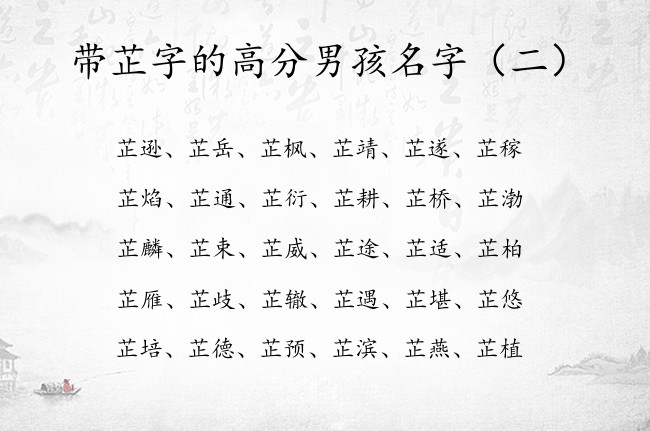 带芷字的高分男孩名字（二）
芷逊、芷岳、芷枫、芷靖、芷遂、芷稼
芷焰、芷通、芷衍、芷耕、芷桥、芷渤
芷麟、芷束、芷威、芷途、芷适、芷柏
芷雁、芷歧、芷辙、芷遇、芷堪、芷悠
芷培、芷德、芷预、芷滨、芷燕、芷植